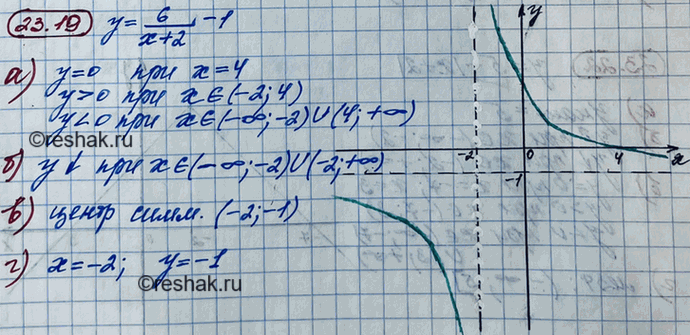 23.19 y = 6/(x+2) - 1
а) y=0 при x=4
y>0 при x∈(-2;4)
y<0 при x∈(-∞;-2)∪(4;+∞)
©reshak.ru
б) y↓ при x∈(-∞;-2)∪(-2;+∞)
в) центр симм. (-2;-1)
г) x=-2; y=-1
©reshak.ru
y
-2 0 4 x
-1